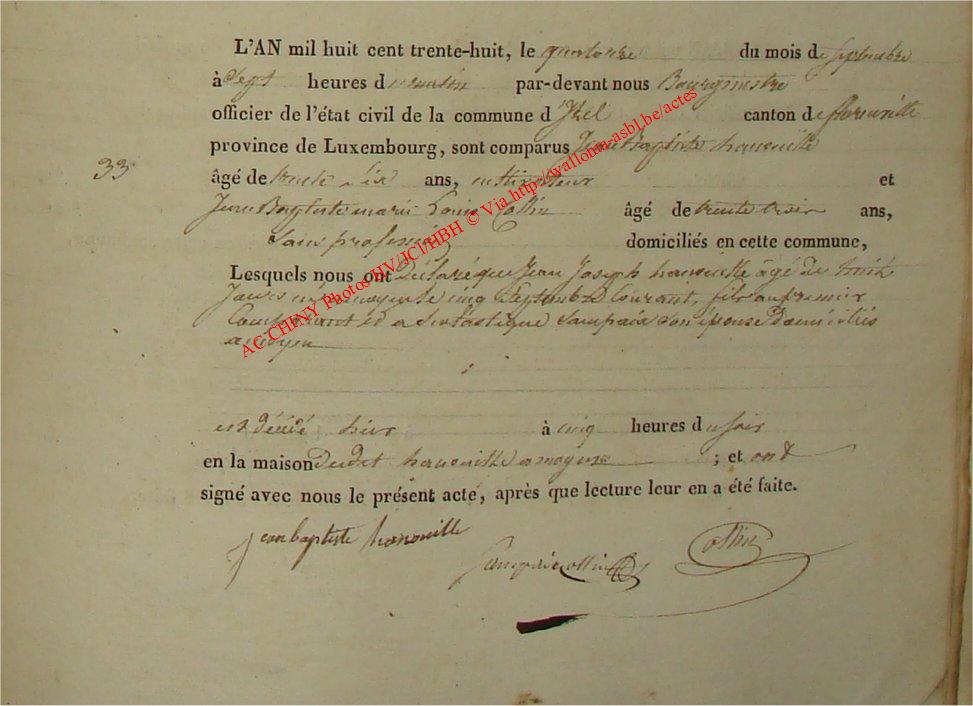 L'AN mil huit cent trente-huit, le quatorze du mois de septembre
à Sept heures du matin par-devant nous Bourgmestre
officier de l'état civil de la commune d'Izel canton de florenville
province de Luxembourg, sont comparus Jean Baptiste hanouille
33
âgé de trente six ans, cultivateur et
Jean Baptiste marie Louis Collin âgé de trente trois ans,
Sans profession domiciliés en cette commune,
Lesquels nous ont Déclaré que Jean Joseph hanouille âgé de huit
Jours né a moyen le cinq Septembre Courant, fils au premier
Comparant et a Son épouse domiciliés
a moyen
est décédé hier à cinq heures du soir
en la maison dudit hanouille a moyen ; et ont
signé avec nous le présent acte, après que lecture leur en a été faite.
Jean baptiste hanouille
Collin
Collin
AC CHINY Photos HV/JCl/HBH © Via http://wallonia-asbl.be/actes